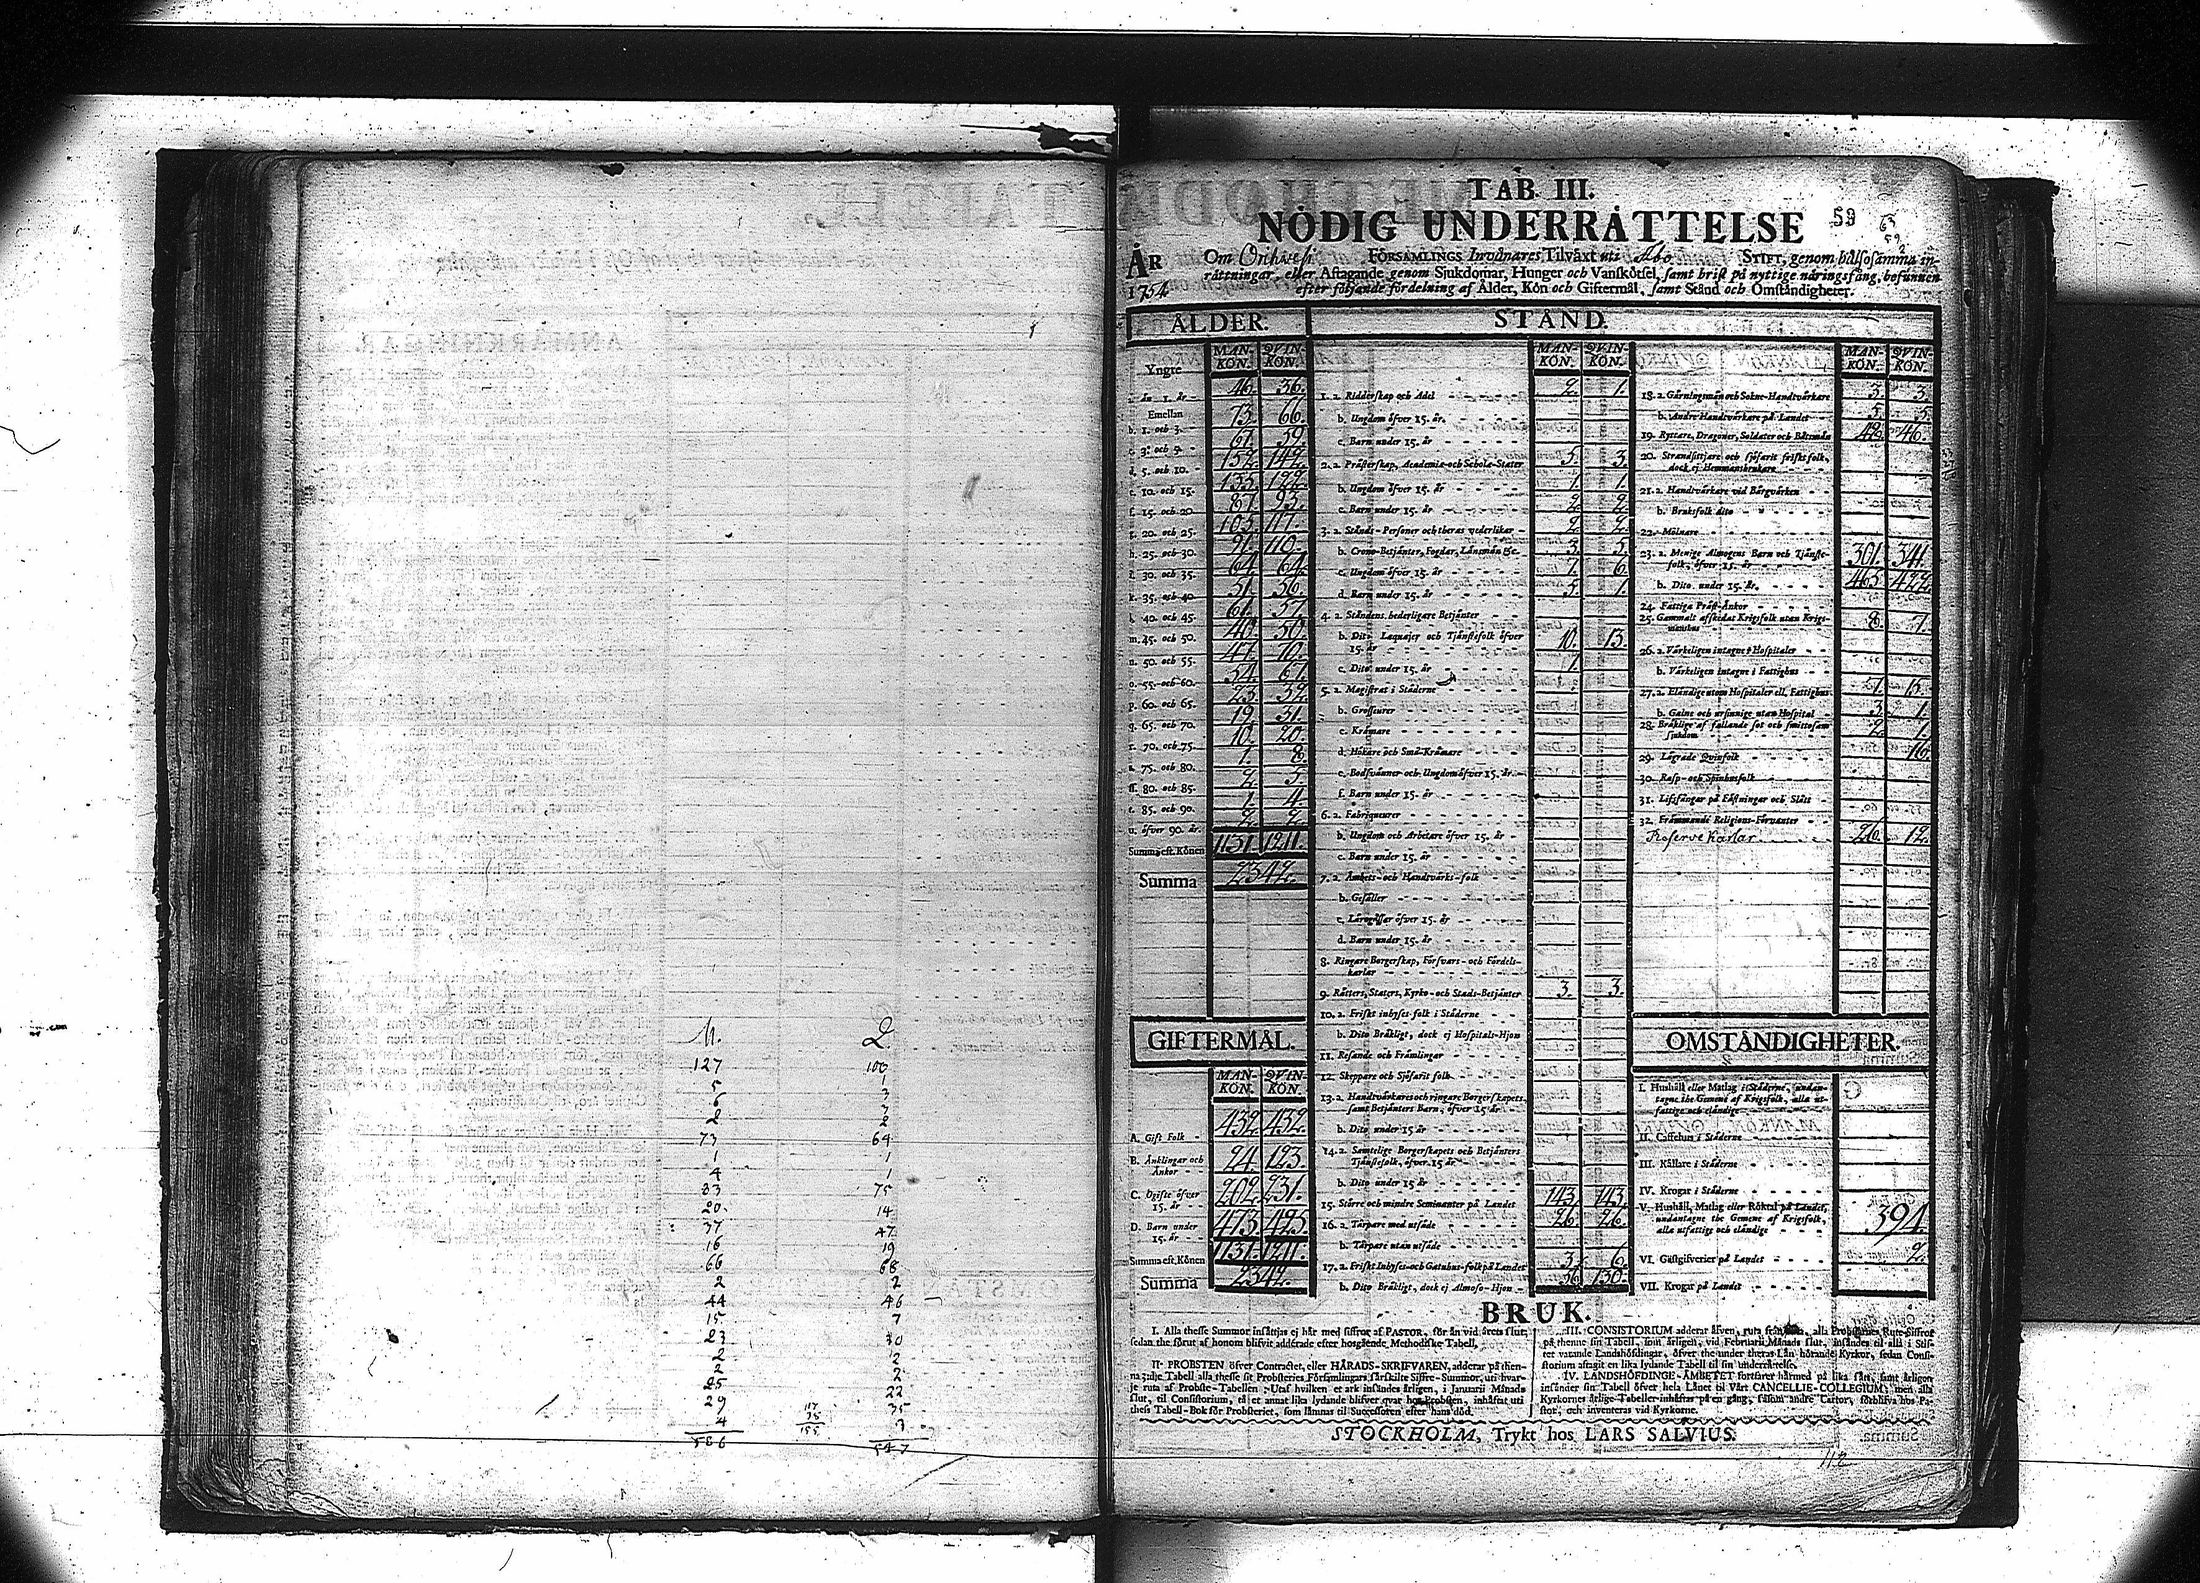 M. Q.
127 100
5 1
6 3
2 2
73 64
1 1
4 1
83 75
20 14
37 47
16 19
66 68
2 2
44 46
15 7
23 30
2 2
2 2
25 22
29 35
4 3
586 547
117
38
155
TAB. III.
NÖDIG UNDERRÄTTELSE
59
63
59
ÅR 1754
Om Orihvesi FÖRSAMLINGS Invånares Tilväxt uti Åbo STIFT, genom hälsosamma in-
rättningar, eller Aftagande genom Sjukdomar, Hunger och Vanskötsel, samt brist på nyttige näringsfång, befunnen
efter följande fördelning af Ålder, Kön och Giftermål, samt Stånd och Omständigheter.
ÅLDER.
MAN-KÖN. QVIN-KÖN.
Yngre
än 1. år 46. 36.
Emellan
b. 1. och 3. 73. 66.
c. 3. och 5. 67. 59.
d. 5. och 10. 152. 142.
e. 10. och 15. 135. 122.
f. 15. och 20. 87. 93.
g. 20. och 25. 103. 117.
h. 25. och 30. 91. 110.
i. 30. och 35. 64. 64.
k. 35. och 40. 51. 56.
l. 40. och 45. 61. 57.
m. 45. och 50. 40. 50.
n. 50. och 55. 47. 70.
o. 55. och 60. 54. 67.
p. 60. och 65. 23. 32.
q. 65. och 70. 19. 31.
r. 70. och 75. 10. 20.
s. 75. och 80. 1. 8.
ss. 80. och 85. 2. 5.
t. 85. och 90. 1. 4.
u. öfver 90. år. 2. 2.
Summa eft. Könen 1131. 1211.
Summa 2342.
GIFTERMÅL.
MAN-KÖN. QVIN-KÖN.
A. Gift Folk 432. 432.
B. Änklingar och Änkor 24. 123.
C. Ogifte öfver 15. år 202. 231.
D. Barn under 15. år 473. 425.
Summa eft. Könen 1131. 1211.
Summa 2342.
STÅND.
MAN-KÖN. QVIN-KÖN.
1. a. Ridderskap och Adel 2. 1.
b. Ungdom öfver 15. år.
c. Barn under 15. år
2. a. Prästerskap, Academiæ- och Scholæ-Stater 5. 3.
b. Ungdom öfver 15. år 1. 1.
c. Barn under 15. år 2. 2.
3. a. Stånds-Personer och theras vederlikar 2. 2.
b. Crono-Betjänter, Fogdar, Länsmän &c. 3. 5.
c. Ungdom öfver 15. år 7. 6.
d. Barn under 15. år 5. 1.
4. a. Ståndens hederligare Betjänter
b. Dito Laquajer och Tjänstefolk öfver 15. år 10. 13.
c. Dito under 15. år 1.
5. a. Magistrat i Städerne
b. Grosseurer
c. Krämare
d. Hökare och Små-Krämare
e. Bodsvänner och Ungdom öfver 15. år
f. Barn under 15. år
6. a. Fabriqueurer
b. Ungdom och Arbetare öfver 15. år
c. Barn under 15. år
7. a. Ämbets- och Handtvärks-folk
b. Gesäller
c. Lärogåssar öfver 15. år
d. Barn under 15. år
8. Ringare Borgerskap, Försvars- och Fördels-karlar
9. Rätters, Staters, Kyrko- och Stads-Betjänter 3. 3.
10. a. Friskt inhyses folk i Städerne
b. Dito Bräkligt, dock ej Hospitals-Hjon
11. Resande och Främlingar
12. Skeppare och Sjöfarit folk
13. a. Handtvärkares och ringare Borgerskapets, samt Betjänters Barn, öfver 15. år
b. Dito under 15 år
14. a. Samtelige Borgerskapets och Betjänters Tjänstefolk, öfver 15. år
b. Dito under 15 år
15. Större och mindre Hemmanter på Landet 143. 143.
16. a. Tårpare med utsäde 26. 26.
b. Tårpare utan utsäde
17. a. Friskt Inhyses- och Gatuhus-folk på Landet 3. 6.
b. Dito Bräkligt, dock ej Almoso-Hjon 36. 130.
MAN-KÖN. QVIN-KÖN.
18. a. Gärningsmän och Sokne-Handtvärkare 3. 3.
b. Andre Handtvärkare på Landet 5. 5.
19. Ryttare, Dragoner, Soldater och Båtsmän 42. 46.
20. Strandsittjare och sjöfarit friskt folk, dock ej Hemmansbrukare
21. a. Handtvärkare vid Bärgvärken
b. Bruksfolk dito
22. Mölnare
23. a. Menige Almogens Barn och Tjänste-folk, öfver 15. år 301. 341.
b. Dito under 15. år. 465. 422.
24. Fattiga Präst-Änkor
25. Gammalt afskedat Krigsfolk utan Krigs-mantal 8. 7.
26. a. Värkeligen intagne i Hospitaler
b. Värkeligen intagne i Fattighus
27. a. Eländige utom Hospitaler ell. Fattighus 1. 15.
b. Galne och ursinnige utan Hospital 3. 1.
28. Bräklige af fallande sot och smittosam sjukdom 2. 1.
29. Lägrade Qvinfolk 16.
30. Rasp- och Spinhusfolk
31. Lifsfångar på Fästningar och Slått
32. Främmande Religions-Förvanter
Reserve Karlar 26. 12.
OMSTÄNDIGHETER.
I. Hushåll eller Matlag i Städerne, undan-tagne the Gemene af Krigsfolk, alla ut-fattige och eländige
II. Caffehus i Städerne
III. Källare i Städerne
IV. Krogar i Städerne
V. Hushåll, Matlag eller Röktal på Landet, undantagne the Gemene af Krigsfolk, alla utfattige och eländige 394.
VI. Gästgifverier på Landet 2.
VII. Krogar på Landet
BRUK.
I. Alla thesse Summor insättjas ej här med siffror af PASTOR, för än vid årets slut,
sedan the förut af honom blifvit adderade efter hosgående Methodiske Tabell.
II. PROBSTEN öfver Contractet, eller HÄRADS-SKRIFVAREN, adderar på then-
na 3:dje Tabell alla thesse sit Probsteries Församlingars särskilte Siffre-Summor, uti hvar-
je ruta af Probste-Tabellen: Utaf hvilken et ark insändes årligen, i Januarii Månads
slut, til Consistorium, tå et annat lika lydande blifver qvar hos Probsten, inhäftat uti
thess Tabell-Bok för Probsteriet, som lämnas til Successoren efter hans död.
III. CONSISTORIUM adderar äfven, ruta från ruta, alla Probstarnes Rute-Siffror
på thenne sin Tabell, som årligen, vid Februarii Månads slut, insändes til alla i Stif-
tet varande Landshöfdingar, öfver the under theras Län hörande Kyrkor, sedan Consi-
storium aftagit en lika lydande Tabell til sin underrättelse.
IV. LANDSHÖFDINGE-ÄMBETET fortfarer härmed på lika sätt, samt årligen
insänder sin Tabell öfver hela Länet til Vårt CANCELLIE-COLLEGIUM; men alla
Kyrkornes årlige Tabeller inhäftas på en gång, såsom andre Cartor, förblifva hos Pa-
stor, och inventeras vid Kyrkorne.
STOCKHOLM, Trykt hos LARS SALVIUS.
112